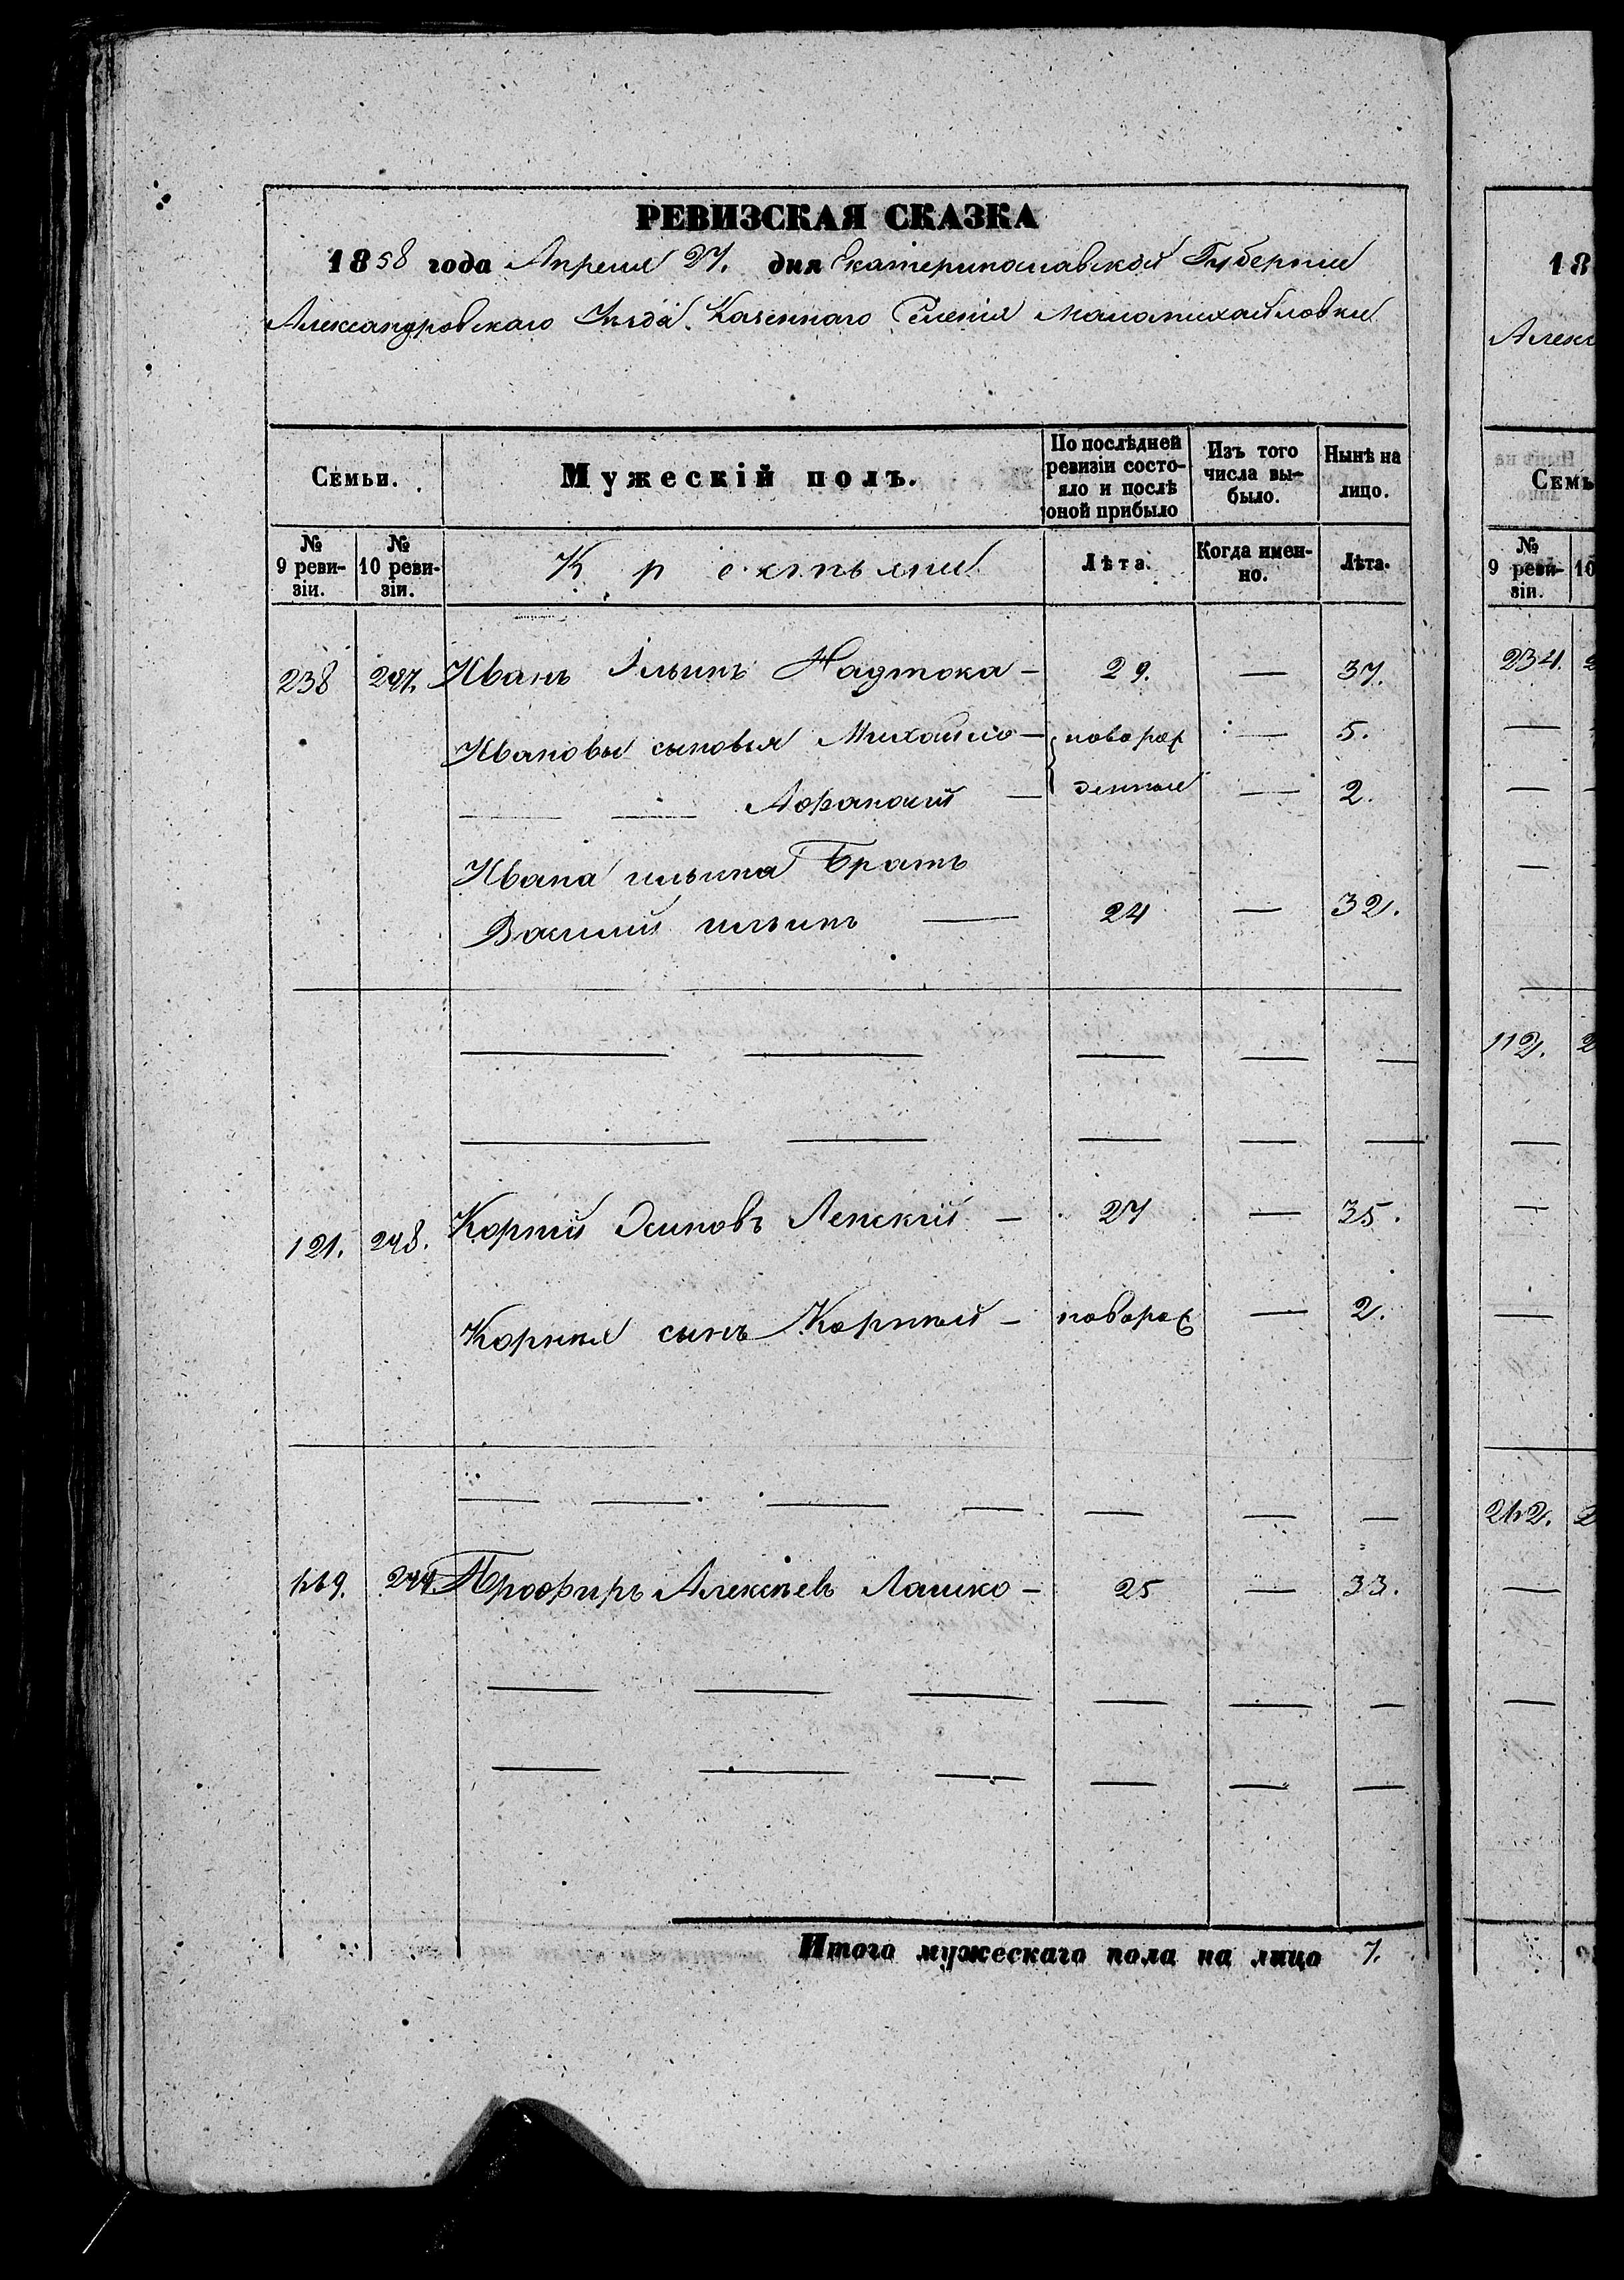 РЕВИЗСКАЯ СКАЗКА
1858 года Апреля 27. дня Екатеринославской Губернии
Александровскаго Уезда. Казеннаго Селенія Маломихайловки
Семьи. Мужескій полъ. По послѣдней ревизіи состояло и послѣ оной прибыло Изъ того числа выбыло. Нынѣ на лицо.
№ 9 ревизіи. № 10 ревизіи. Крестьяне Лѣта. Когда именно. Лѣта.
238 247. Иванъ Ильинъ Надтока — 29. — 37.
Ивановы сыновья Михайло — новорож — 5.
— — Афанасий — денные — 2.
Ивана ильина Братъ
Василий ильинъ — 24 — 32.
121. 248. Корней Осиповъ Ленский — 27 — 35.
Корнея сынъ Корней — новорож — 2.
249. Профиръ Алексѣевъ Лашко — 25 — 33.
Итого мужескаго пола на лицо 7.
18
Алекс
Семь
№ 9 ревизіи. 10
234. 2
112. 2
242. 2